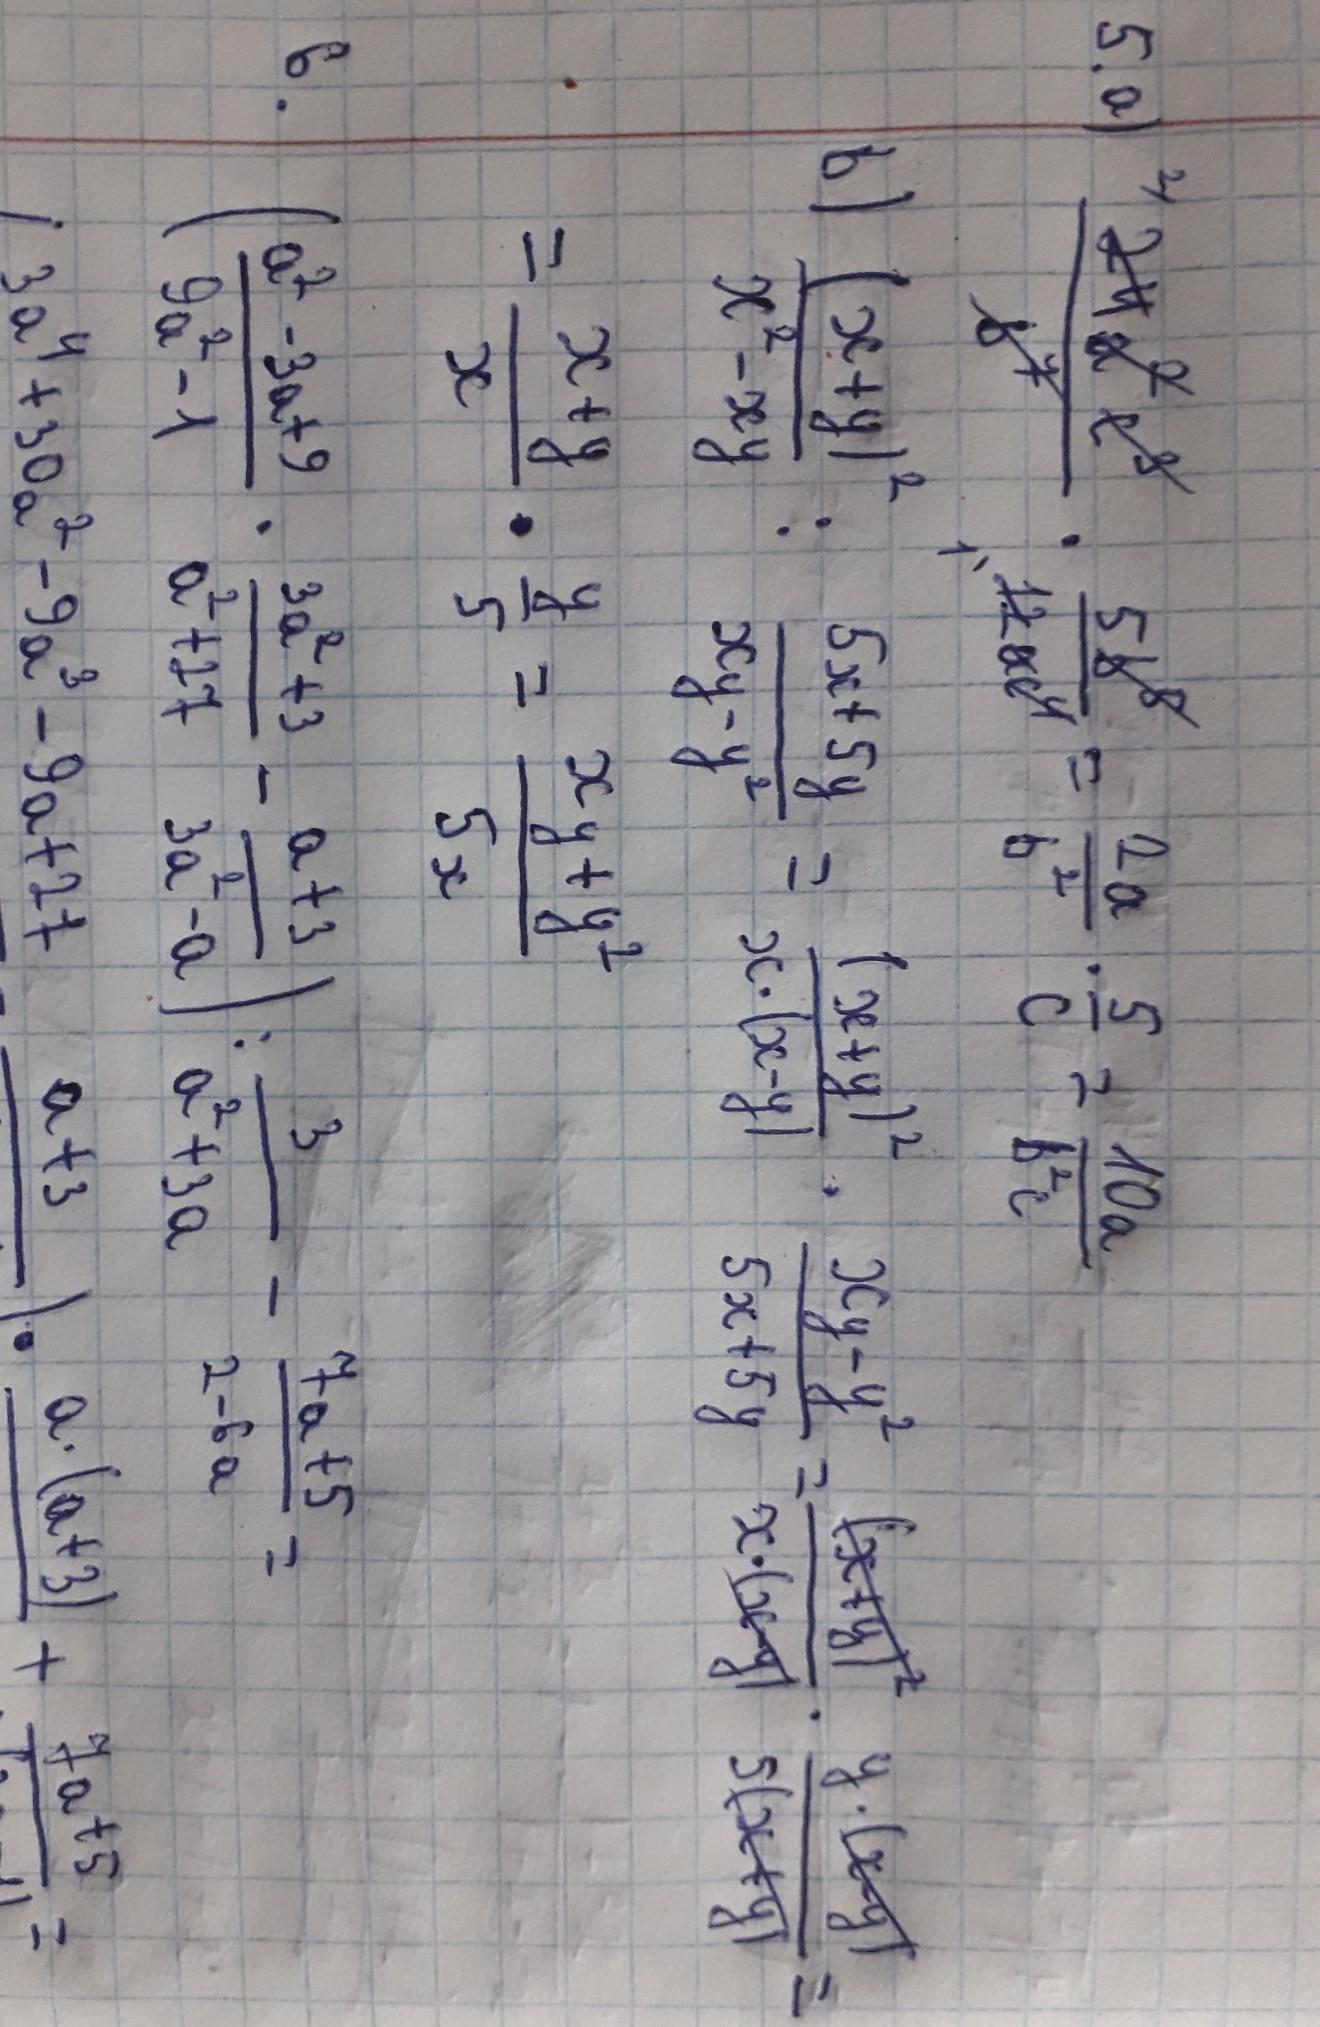 5.a) 2 24a²c⁸/b⁷ · 5b⁸/12ac⁴ 1 = 2a/b² · 5/c = 10a/b²c
b) (x+y)²/x²-xy : 5x+5y/xy-y² = (x+y)²/x·(x-y) · xy-y²/5x+5y = (x+y)²/x·(x-y) · y·(x-y)/5(x+y) =
= x+y/x · y/5 = xy+y²/5x
6. (a²-3a+9/9a²-1 · 3a²+3/a²+27 - a+3/3a²-a) : 3/a²+3a - 7a+5/2-6a =
(3a⁴+30a²-9a³-9a+27 - a+3) · a·(a+3) + 7a+5 =